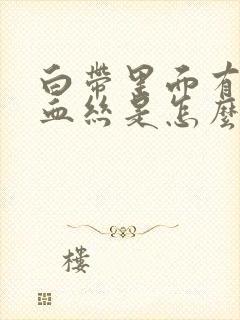 白帶里而有
血絲是怎麼
樓